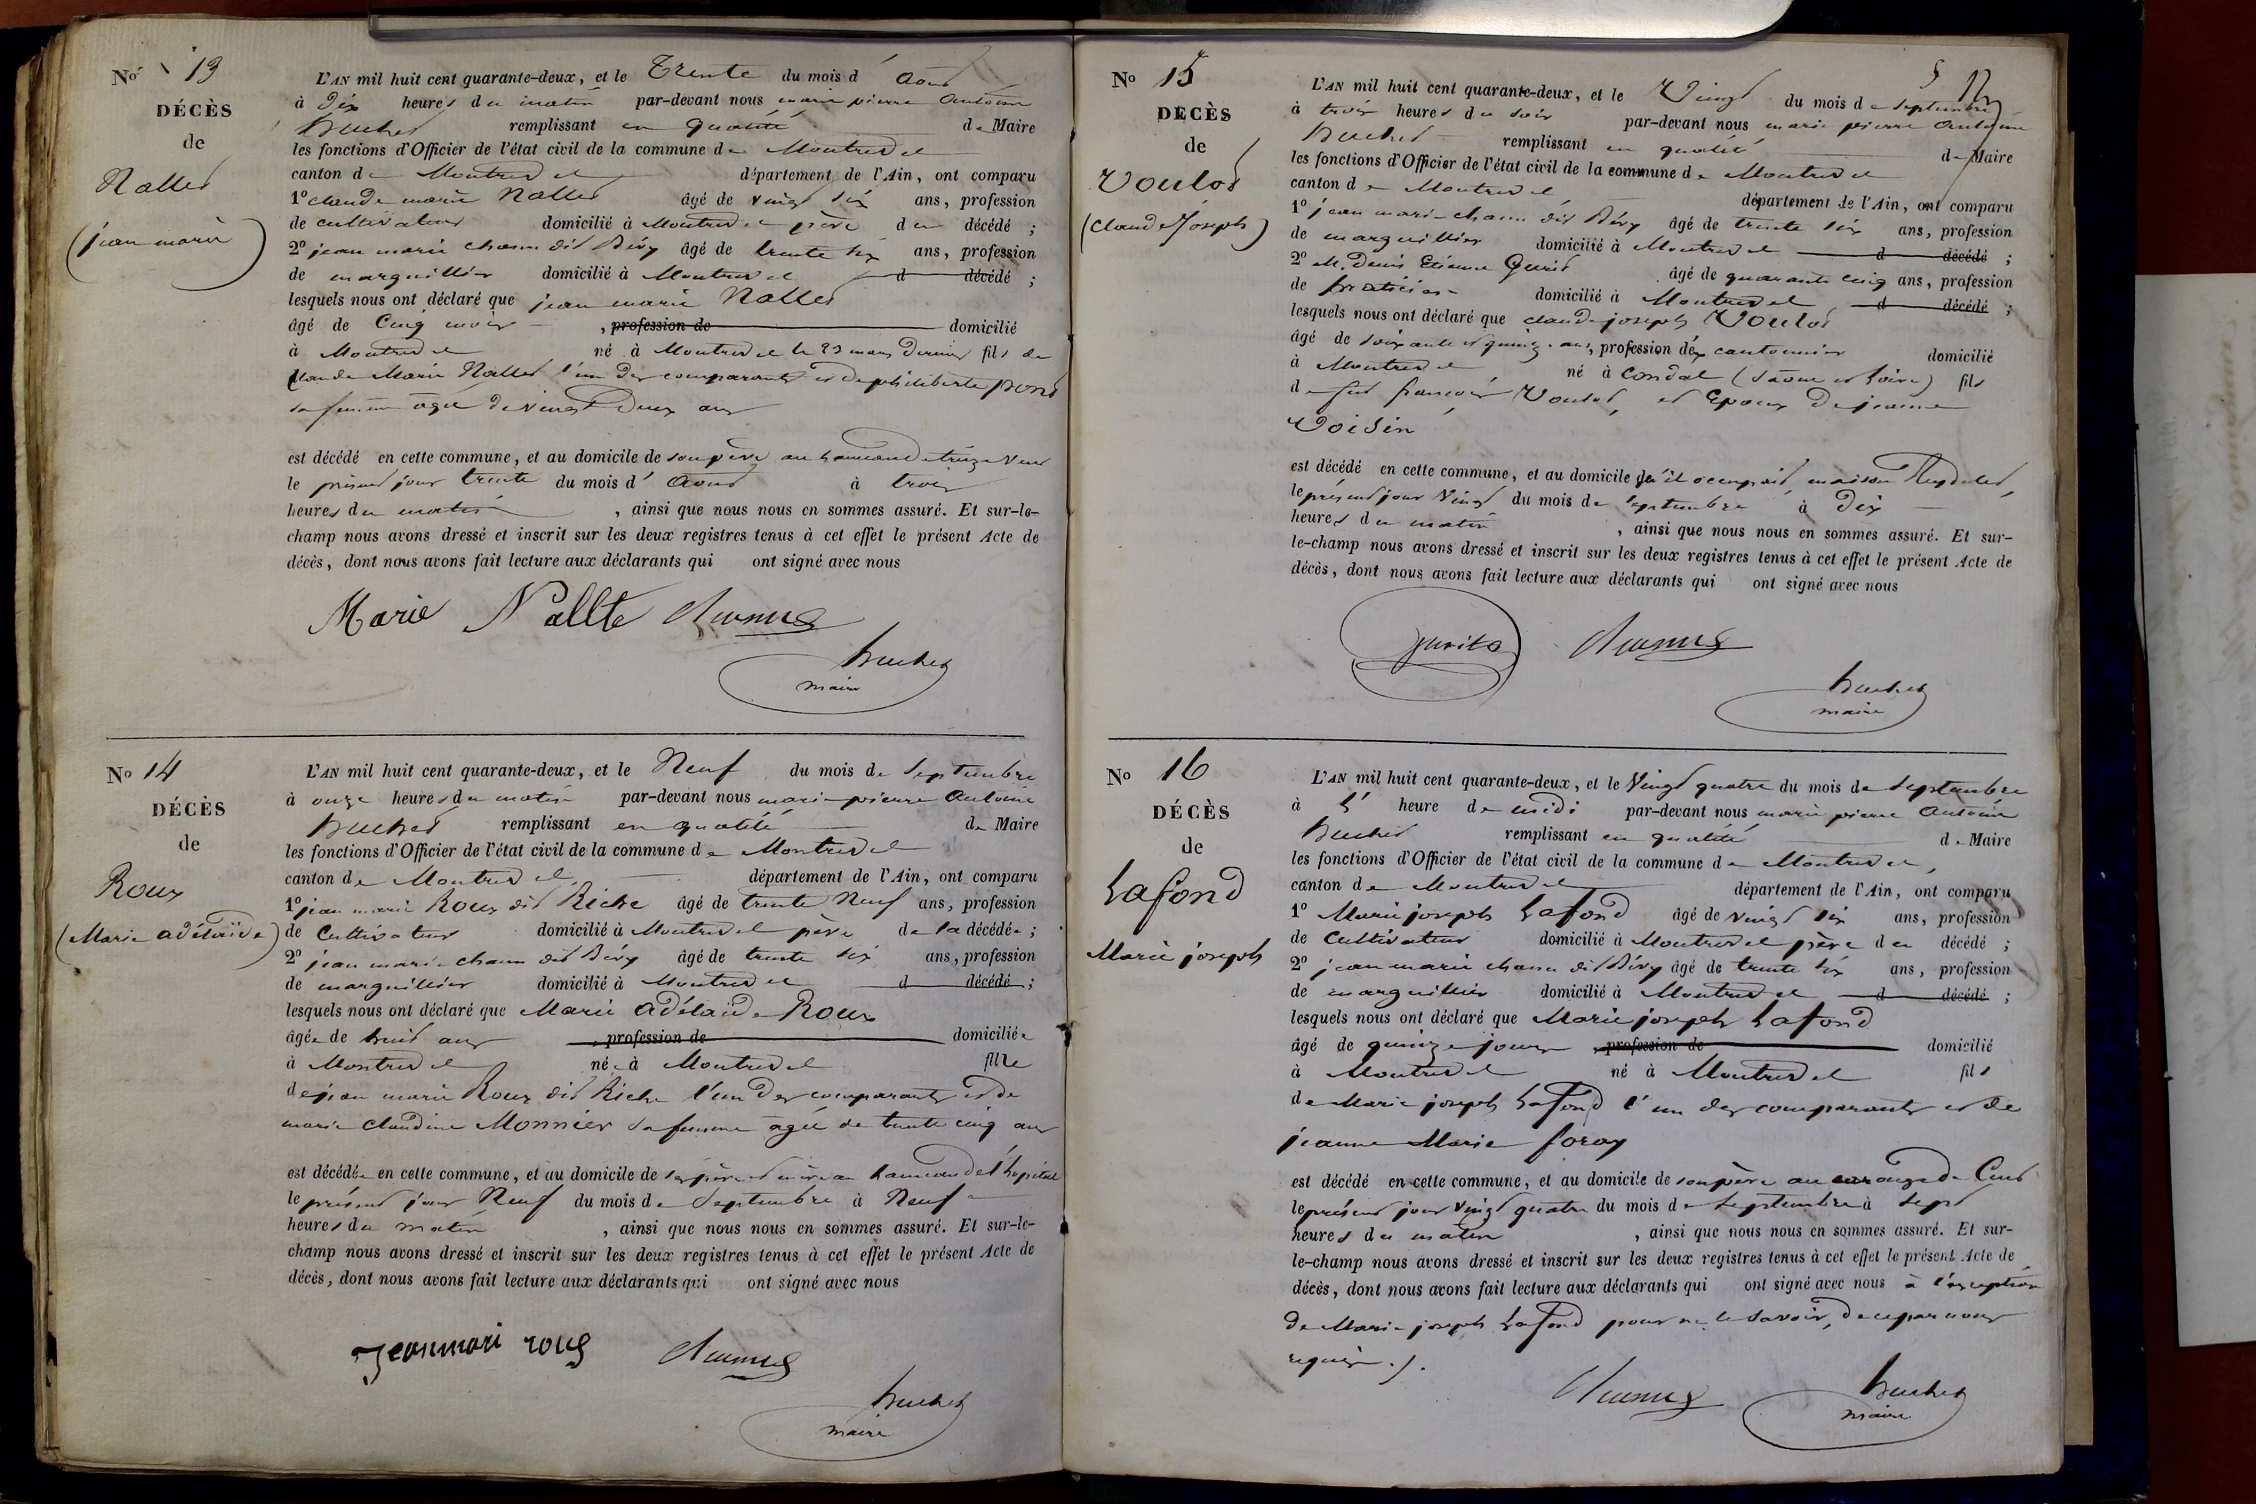 No 13
DÉCÈS
de
Nallet
(jean marie)
L'AN mil huit cent quarante-deux, et le Trente du mois d' Aout
à dix heures du matin par-devant nous marie pierre Antoine
huchet remplissant en qualité de Maire
les fonctions d'Officier de l'état civil de la commune de Montrevel
canton de Montrevel département de l'Ain, ont comparu
1º claude marie Nallet âgé de vingt six ans, profession
de cultivateur domicilié à Montrevel père du décédé ;
2º jean marie chanu dit Bévy âgé de trente six ans, profession
de marguillier domicilié à Montrevel d décédé ;
lesquels nous ont déclaré que jean marie Nallet
âgé de Cinq mois , profession de domicilié
à Montrevel né à Montrevel le 23 mars dernier fils de
Claude Marie Nallet l'un des comparants et de philiberte pond
sa femme agée de vingt Deux ans
est décédé en cette commune, et au domicile de son père au hameau de treize vent
le présent jour trente du mois d' Aout à trois
heures du matin , ainsi que nous nous en sommes assuré. Et sur-le-
champ nous avons dressé et inscrit sur les deux registres tenus à cet effet le présent Acte de
décès, dont nous avons fait lecture aux déclarants qui ont signé avec nous
Marie Nallte
huchet
maire
No 14
DÉCÈS
de
Roux
(Marie adélaïde)
L'AN mil huit cent quarante-deux, et le Neuf du mois de Septembre
à onze heures du matin par-devant nous marie pierre Antoine
huchet remplissant en qualité de Maire
les fonctions d'Officier de l'état civil de la commune de Montrevel
canton de Montrevel département de l'Ain, ont comparu
1º jean marie Roux dit Riche âgé de trente Neuf ans, profession
de Cultivateur domicilié à Montrevel père de la décédée ;
2º jean marie chanu dit Bévy âgé de trente six ans, profession
de marguillier domicilié à Montrevel d décédé ;
lesquels nous ont déclaré que Marie Adélaïde Roux
âgée de huit ans , profession de domiciliée
à Montrevel née à Montrevel fille
de jean marie Roux dit Riche l'un des comparants et de
marie Claudine Monnier sa femme agée de trente cinq ans
est décédée en cette commune, et au domicile de ses père et mère au hameau de l'hopital
le présent jour Neuf du mois de Septembre à Neuf
heures du matin , ainsi que nous nous en sommes assuré. Et sur-le-
champ nous avons dressé et inscrit sur les deux registres tenus à cet effet le présent Acte de
décès, dont nous avons fait lecture aux déclarants qui ont signé avec nous
Jeanmari roux
huchet
maire
No 15
DÉCÈS
de
Voulot
(Claude Joseph)
L'AN mil huit cent quarante-deux, et le Vingt du mois de septembre
à trois heures du soir par-devant nous marie pierre Antoine
huchet remplissant en qualité de Maire
les fonctions d'Officier de l'état civil de la commune de Montrevel
canton de Montrevel département de l'Ain, ont comparu
1º jean marie chanu dit Bévy âgé de trente six ans, profession
de marguillier domicilié à Montrevel d décédé ;
2º M. Denis Etienne Gurit âgé de quarante cinq ans, profession
de praticien domicilié à Montrevel d décédé ;
lesquels nous ont déclaré que claude joseph Voulot
âgé de soixante et quinze ans, profession d'ex cantonnier domicilié
à Montrevel né à Condal (Saône et Loire) fils
de feu françois Voulot, et Epoux de jeanne
Voisin
est décédé en cette commune, et au domicile qu'il occupait, maison
le présent jour vingt du mois de septembre à dix
heures du matin , ainsi que nous nous en sommes assuré. Et sur-
le-champ nous avons dressé et inscrit sur les deux registres tenus à cet effet le présent Acte de
décès, dont nous avons fait lecture aux déclarants qui ont signé avec nous
huchet
maire
No 16
DÉCÈS
de
Lafond
Marie joseph
L'AN mil huit cent quarante-deux, et le Vingt quatre du mois de septembre
à l' heure de midi par-devant nous marie pierre Antoine
huchet remplissant en qualité de Maire
les fonctions d'Officier de l'état civil de la commune de Montrevel,
canton de Montrevel département de l'Ain, ont comparu
1º Marie joseph Lafond âgé de vingt six ans, profession
de Cultivateur domicilié à Montrevel père du décédé ;
2º jean marie chanu dit Bévy âgé de trente six ans, profession
de marguillier domicilié à Montrevel d décédé ;
lesquels nous ont déclaré que Marie joseph Lafond
âgé de quinze jours , profession de domicilié
à Montrevel né à Montrevel fils
de Marie joseph Lafond l'un des comparants et de
jeanne Marie foray
est décédé en cette commune, et au domicile de son père au
le présent jour vingt quatre du mois de septembre à sept
heures du matin , ainsi que nous nous en sommes assuré. Et sur-
le-champ nous avons dressé et inscrit sur les deux registres tenus à cet effet le présent Acte de
décès, dont nous avons fait lecture aux déclarants qui ont signé avec nous à l'exception
de Marie joseph Lafond pour ne le savoir, de ce par nous
requis ./.
huchet
maire